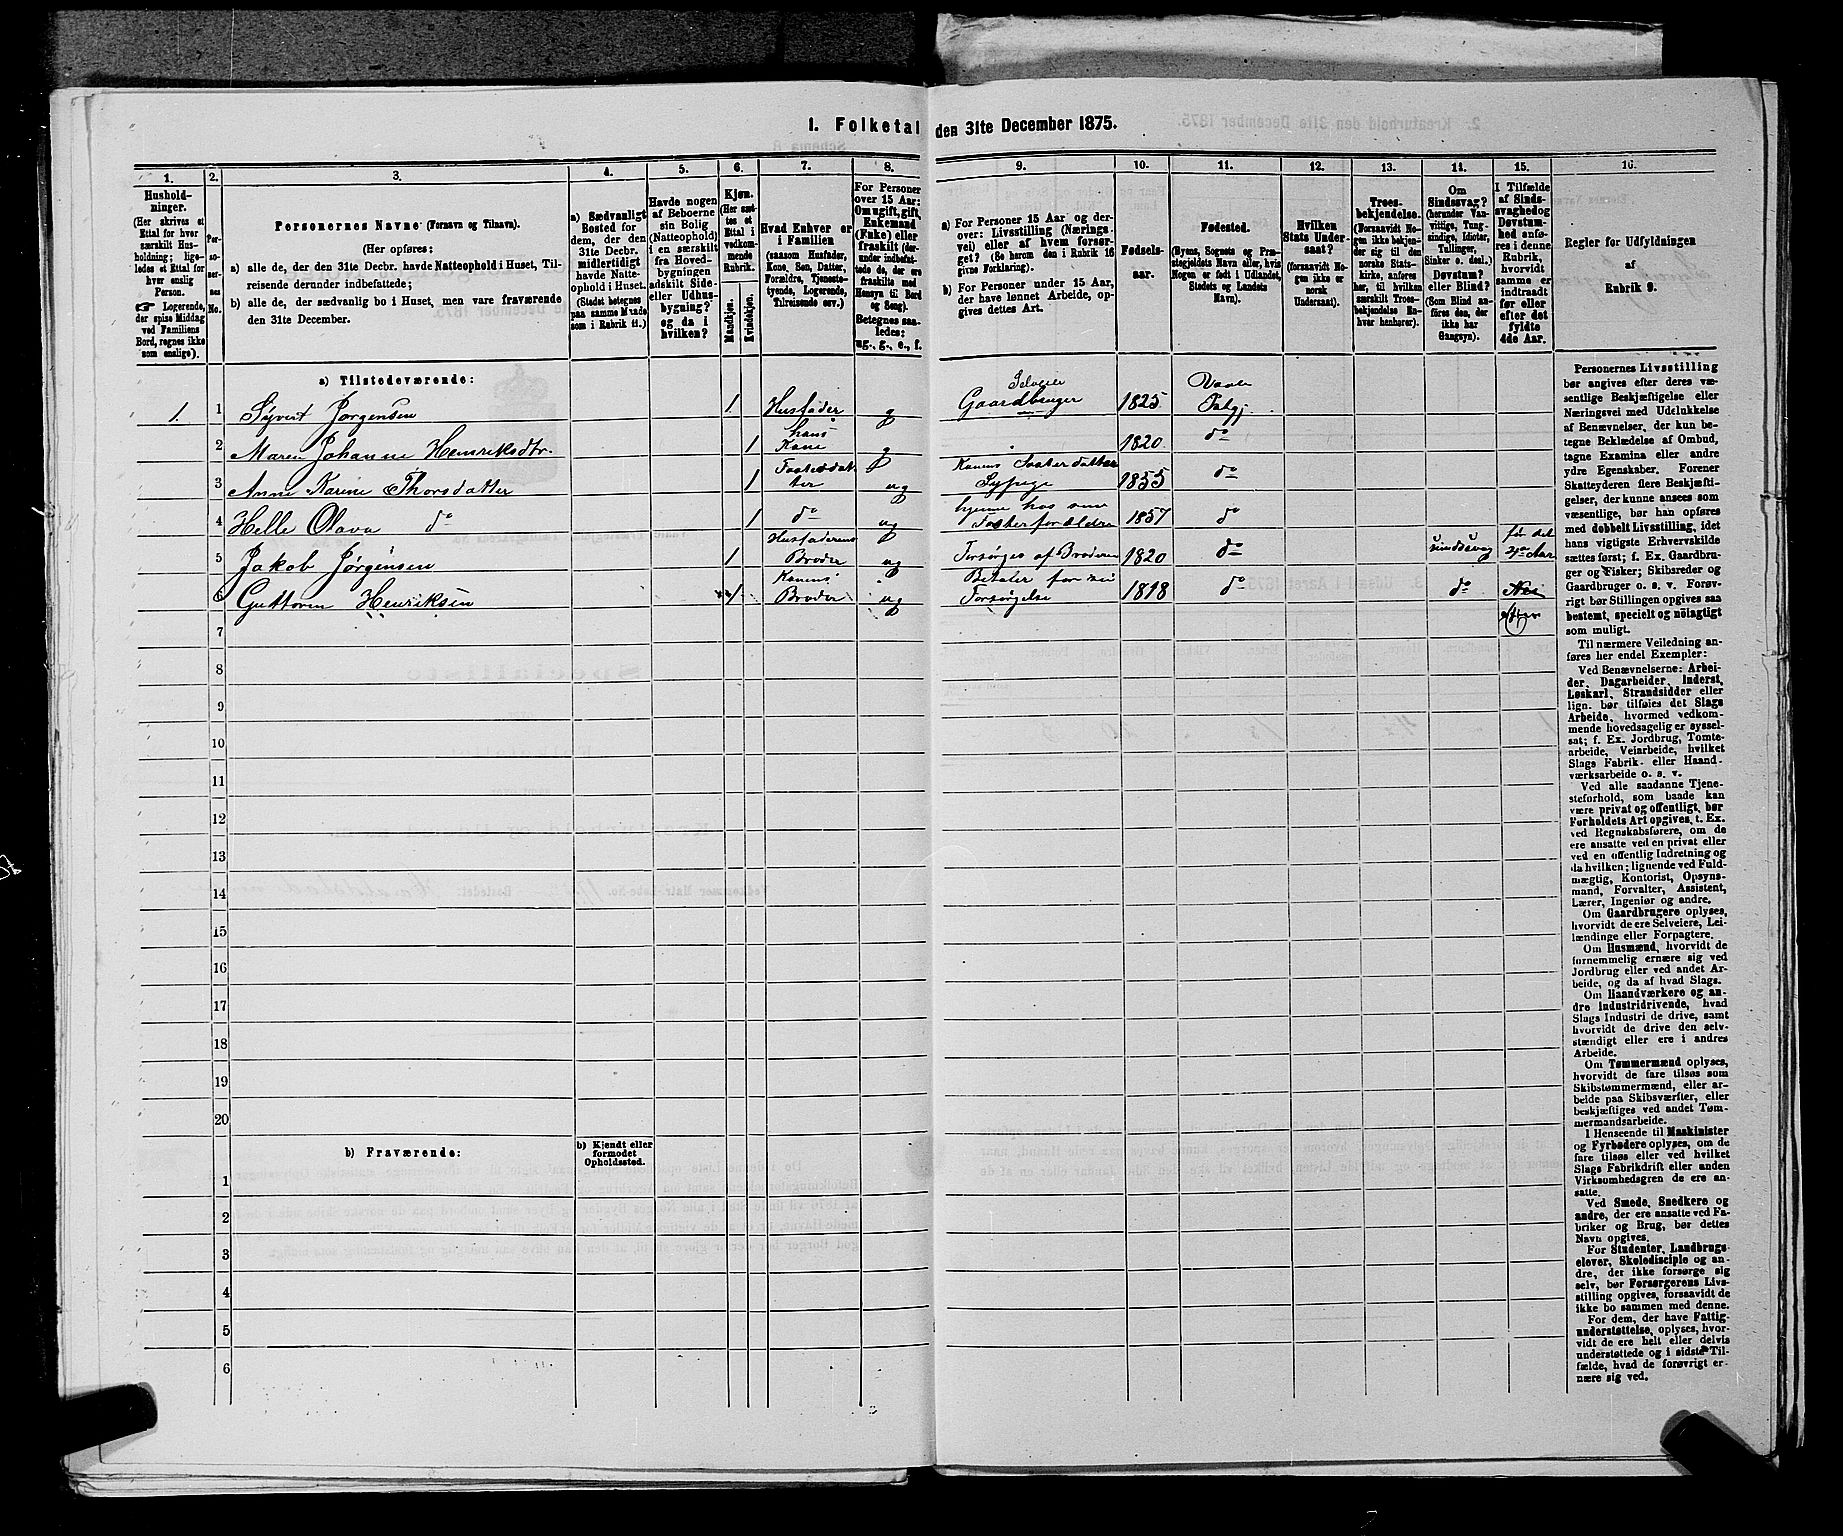 1. Folketal den 31te December 1875.
1. 2. 3. 4. 5. 6. 7. 8. 9. 10. 11. 12. 13. 14. 15. 16.
Hushold-
ninger.
(Her skrives et
Ettal for hver
særskilt Hus-
holdning; lige-
ledes et Ettal for
hver enslig
Person.
☞ Logerende,
der spise Middag
ved Familiens
Bord, regnes ikke
som enslige).
Per-
so-
ner-
nes
No.
Personernes Navne (Fornavn og Tilnavn).
(Her opføres;
a) alle de, der den 31te Decbr. havde Natteophold i Huset, Til-
reisende derunder indbefattede;
b) alle de, der sædvanlig bo i Huset, men vare fraværende
den 31te December.
a) Sædvanligt
Bosted for
dem, der den
31te Decbr.
midlertidigt
havde Natte-
ophold i Huset.
(Stedet betegnes
paa samme Maade
som i Rubrik 11.)
Havde nogen
af Beboerne
sin Bolig
(Natteophold)
i en særskilt
fra Hoved-
bygningen
adskilt Side-
eller Udhus-
bygning?
og da i
hvilken?
Kjøn.
(Her sæt-
tes et
Ettal i
vedkom-
mende
Rubrik.
Mandkjøn.
Kvindekjøn.
Hvad Enhver er
i Familien
(saasom Husfader,
Kone, Søn, Datter,
Forældre, Tjeneste-
tyende, Logerende,
Tilreisende osv.)
For Personer
over 15 Aar:
Om ugift, gift,
Enkemand
(Enke) eller
fraskilt (der-
under indbefat-
tede de, der ere
fraskilte med
Hensyn til Bord
og Seng).
Betegnes saa-
ledes:
ug., g., e., f.
a) For Personer 15 Aar og der-
over: Livsstilling (Nærings-
vei) eller af hvem forsør-
get? (Se herom den i Rubrik 16
givne Forklaring).
b) For Personer under 15 Aar,
der have lønnet Arbeide, op-
gives dettes Art.
Fødsels-
aar.
Fødested.
(Byens, Sognets og Præ-
stegjeldets Navn eller, hvis
Nogen er født i Udlandet,
Stedets og Landets
Navn).
Hvilken
Stats Under-
saat?
(forsaavidt No-
gen ikke er
norsk
Undersaat).
Troes-
bekjendelse.
(Forsaavidt No-
gen ikke bekjen-
der sig til den
norske Stats-
kirke, anføres
her, til hvilken
særskilt Troes-
bekjendelse En-
hver henhører).
Om
Sindssvag?
(herunder Van-
vittige, Tung-
sindige, Idioter,
Tullinger,
Sinker o. desl.)
Døvstum?
eller Blind?
(Som Blind an-
føres den, der
ikke har
Gangsyn).
I Tilfælde
af Sinds-
svaghed og
Døvstum-
hed anfø-
res i denne
Rubrik,
hvorvidt
samme er
indtraadt
før eller
efter det
fyldte
4de Aar.
Regler for Udfyldningen
af
Rubrik 9.
a) Tilstedeværende:
1. 1 Syvert Jørgensen 1 Husfader g Selveier Gaardbruger 1825 Vaale Prstgj.
2 Maren Johanne Henriksdtr. 1 hans Kone g " 1820 do
3 Anne Karine Thorsdatter 1 Fosterdatter ug Konens Søsterdatter Sypige 1855 do
4 Helle Olava do 1 do ug hjemme hos sine Fosterforældre 1857 do
5 Jakob Jørgensen 1 Husfaderens Broder ug Forsørges af Broderen 1820 do sindssvag før det 4de Aar
6 Guttorm Henriksen 1 Konens Broder ug Betaler for sin Forsørgelse 1818 do do Nei efter
7
8
9
10
11
12
13
14
15
16
17
18
19
20
b) Fraværende:
b) Kjendt eller
formodet
Opholdssted.
1
2
3
4
5
6
Personernes Livsstilling
bør angives efter deres væ-
sentlige Beskjæftigelse eller
Næringsvei med Udelukkelse
af Benævnelser, der kun be-
tegne Beklædelse af Ombud,
tagne Examina eller andre
ydre Egenskaber. Forener
Skatteyderen flere Beskjæfti-
gelser, der kunne ansees som
væsentlige, bør han opføres
med dobbelt Livsstilling, idet
hans vigtigste Erhvervskilde
sættes først; f. Ex. Gaardbru-
ger og Fisker; Skibsreder og
Gaardbruger o. s. v. Forøv-
rigt bør Stillingen opgives saa
bestemt, specielt og nøiagtigt
som muligt.
Til nærmere Veiledning an-
føres her endel Exempler:
Ved Benævnelserne: Arbei-
der, Dagarbeider, Inderst,
Løskarl, Strandsidder eller
lign. bør tilføies det Slags
Arbeide, hvormed vedkom-
mende hovedsagelig er syssel-
sat; f. Ex. Jordbrug, Tomte-
arbeide, Veiarbeide, hvilket
Slags Fabrik- eller Haand-
værksarbeide o. s. v.
Ved alle saadanne Tjene-
steforhold, som baade kan
være privat og offentligt, bør
Forholdets Art opgives, t. Ex.
ved Regnskabsførere, om de
ere ansatte ved en privat eller
ved en offentlig Indretning og
da hvilken; lignende ved Fuld-
mægtig, Kontorist, Opsyns-
mand, Forvalter, Assistent,
Lærer, Ingeniør og andre.
Om Gaardbrugere oplyses,
hvorvidt de ere Selveiere, Lei-
lændinge eller Forpagtere.
Om Husmænd, hvorvidt de
fornemmelig ernære sig ved
Jordbrug eller ved andet Ar-
beide, og da af hvad Slags.
Om Haandværkere og an-
dre Industridrivende, hvad
Slags Industri de drive, samt
hvorvidt de drive den selv-
stændigt eller ere i andres
Arbeide.
Om Tømmermænd oplyses,
hvorvidt de fare tilsøs som
Skibstømmermænd, eller ar-
beide paa Skibsværfter, eller
beskjæftiges ved andet Tøm-
mermandsarbeide.
I Henseende til Maskinister
og Fyrbødere oplyses, om de
fare tilsøs eller ved hvilket
Slags Fabrikdrift eller anden
Virksomhedsgren de ere an-
satte.
Ved Smede, Snedkere og
andre, der ere ansatte ved Fa-
briker og Brug, bør dettes
Navn opgives.
For Studenter, Landbrugs-
elever, Skoledisciple og an-
dre, der ikke forsørge sig
selv, bør Forsørgerens Livs-
stilling opgives, forsaavidt de
ikke bo sammen med denne.
For dem, der have Fattig-
understøttelse, oplyses, hvor-
vidt de ere helt eller delvis
understøttede og i sidste Til-
fælde, hvad de forøvrigt er-
nære sig ved.